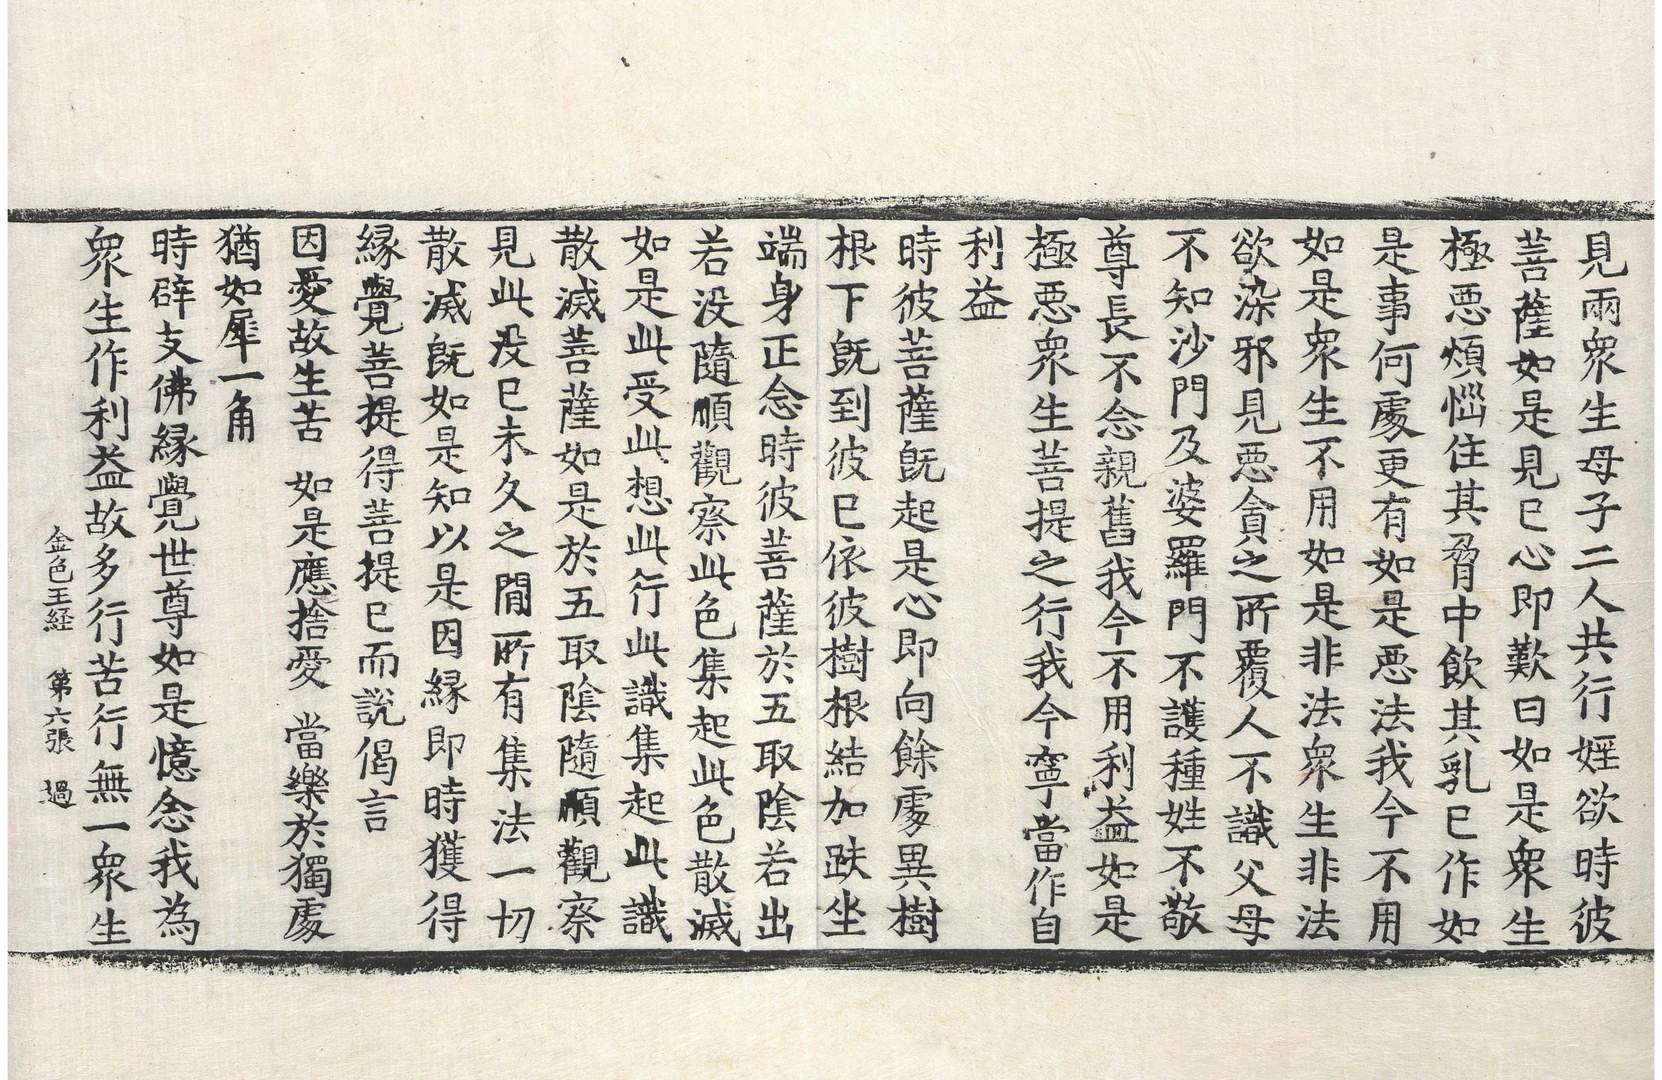 見兩衆生母子二人共行婬欲時彼
菩薩如是見已心即歎曰如是衆生
極惡煩惱住其脅中飲其乳已作如
是事何處更有如是惡法我今不用
如是衆生不用如是非法衆生非法
欲染邪見惡貪之所覆人不識父母
不知沙門及婆羅門不護種姓不敬
尊長不念親舊我今不用利益如是
極惡衆生菩提之行我今寧當作自
利益
時彼菩薩既起是心即向餘處異樹
根下既到彼已依彼樹根結加趺坐
端身正念時彼菩薩於五取陰若出
若没隨順觀察此色集起此色散滅
如是此受此想此行此識集起此識
散滅菩薩如是於五取陰隨順觀察
見此没已未久之間所有集法一切
散滅既如是知以是因縁即時獲得
縁覺菩提得菩提已而説偈言
因愛故生苦 如是應捨愛 當樂於獨處
猶如犀一角
時辟支佛縁覺世尊如是憶念我為
衆生作利益故多行苦行無一衆生
金色王経 第六張 過